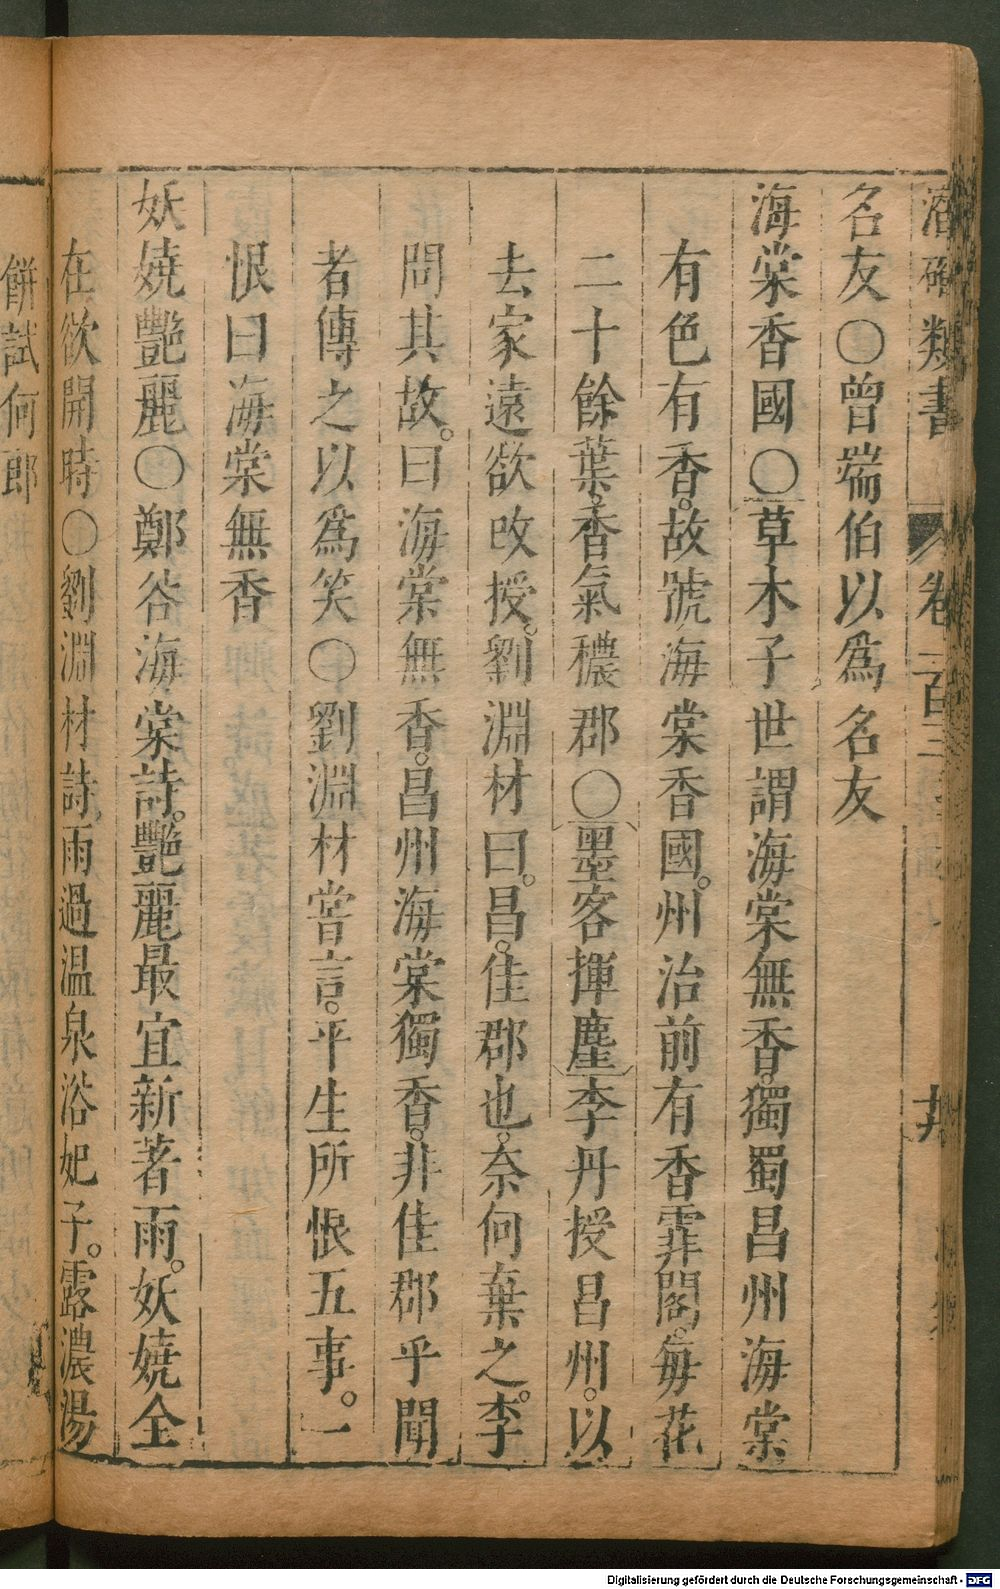 類書 卷一百三
名友〇曾端伯以爲名友
海棠香國〇草木子世謂海棠無香獨蜀昌州海棠
有色有香故號海棠香國州治前有香霏閣每花
二十餘葉香氣穠郁〇墨客揮塵李丹授昌州以
去家遠欲改授劉淵材曰昌佳郡也奈何棄之李
問其故曰海棠無香昌州海棠獨香非佳郡乎聞
者傳之以爲笑〇劉淵材嘗言平生所恨五事一
恨曰海棠無香
妖嬈艷麗〇鄭谷海棠詩艷麗最宜新著雨妖嬈全
在欲開時〇劉淵材詩雨過温泉浴妃子露濃湯
餅試何郎
Digitalisierung gefördert durch die Deutsche Forschungsgemeinschaft - DFG